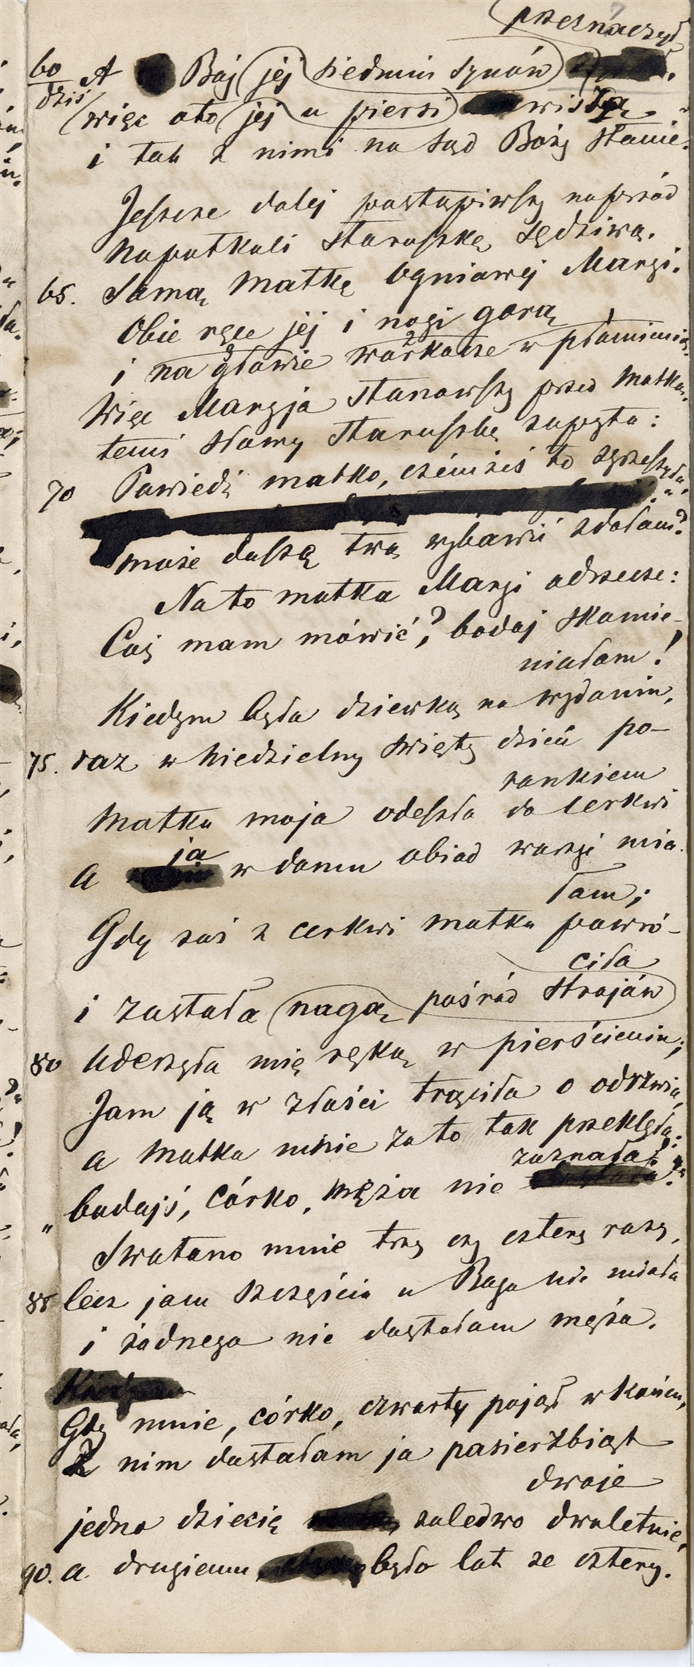 przeznaczył
60 A Bóg jej siedmiu synów
dziś
więc oto jej u piersi wiszą
i tak z nimi na sąd Boży stanie.
Jeszcze dalej postąpiwszy naprzód
napotkali staruszkę sędziwą.
65. Samą matkę Ogniowej Margi.
Obie ręce jej i nogi gorą
i na głowie warkocze w płomieniu.
Więc Margja stanąwszy przed matką,
temi słowy staruszkę zapyta:
70 Powiedź matko, czémżeś to zgrzeszyła,
może duszę twą wybawić zdołam?
Na to matka Margi odrzecze:
Cóż mam mówić? bodaj skamie-
niałam!
Kiedym była dziewką na wydaniu,
75. raz w niedzielny święty dzień po-
rankiem
Matka moja odeszła do cerkwi
a ja w domu obiad warzyć mia-
łam;
Gdy zaś z cerkwi matka powró-
ciła
i zastała nagą pośród strojów
80 Uderzyła mię ręką w pierścieniu;
Jam ją w złości trąciła o odrzwia,
a matka mnie za to tak przeklęła:
zaznała!"
„bodajś, córko, męża nie
Swatano mnie trzy czy cztery razy,
85 lecz jam szczęścia u Boga nie miała
i żadnego nie dostałam męża.
Gdy mnie, córko, czwarty pojął w końcu,
Z nim dostałam ja pasierzbiąt
dwoje
jedno dziecię zaledwo dwuletnie,
90. a drugiemu było lat ze cztery.